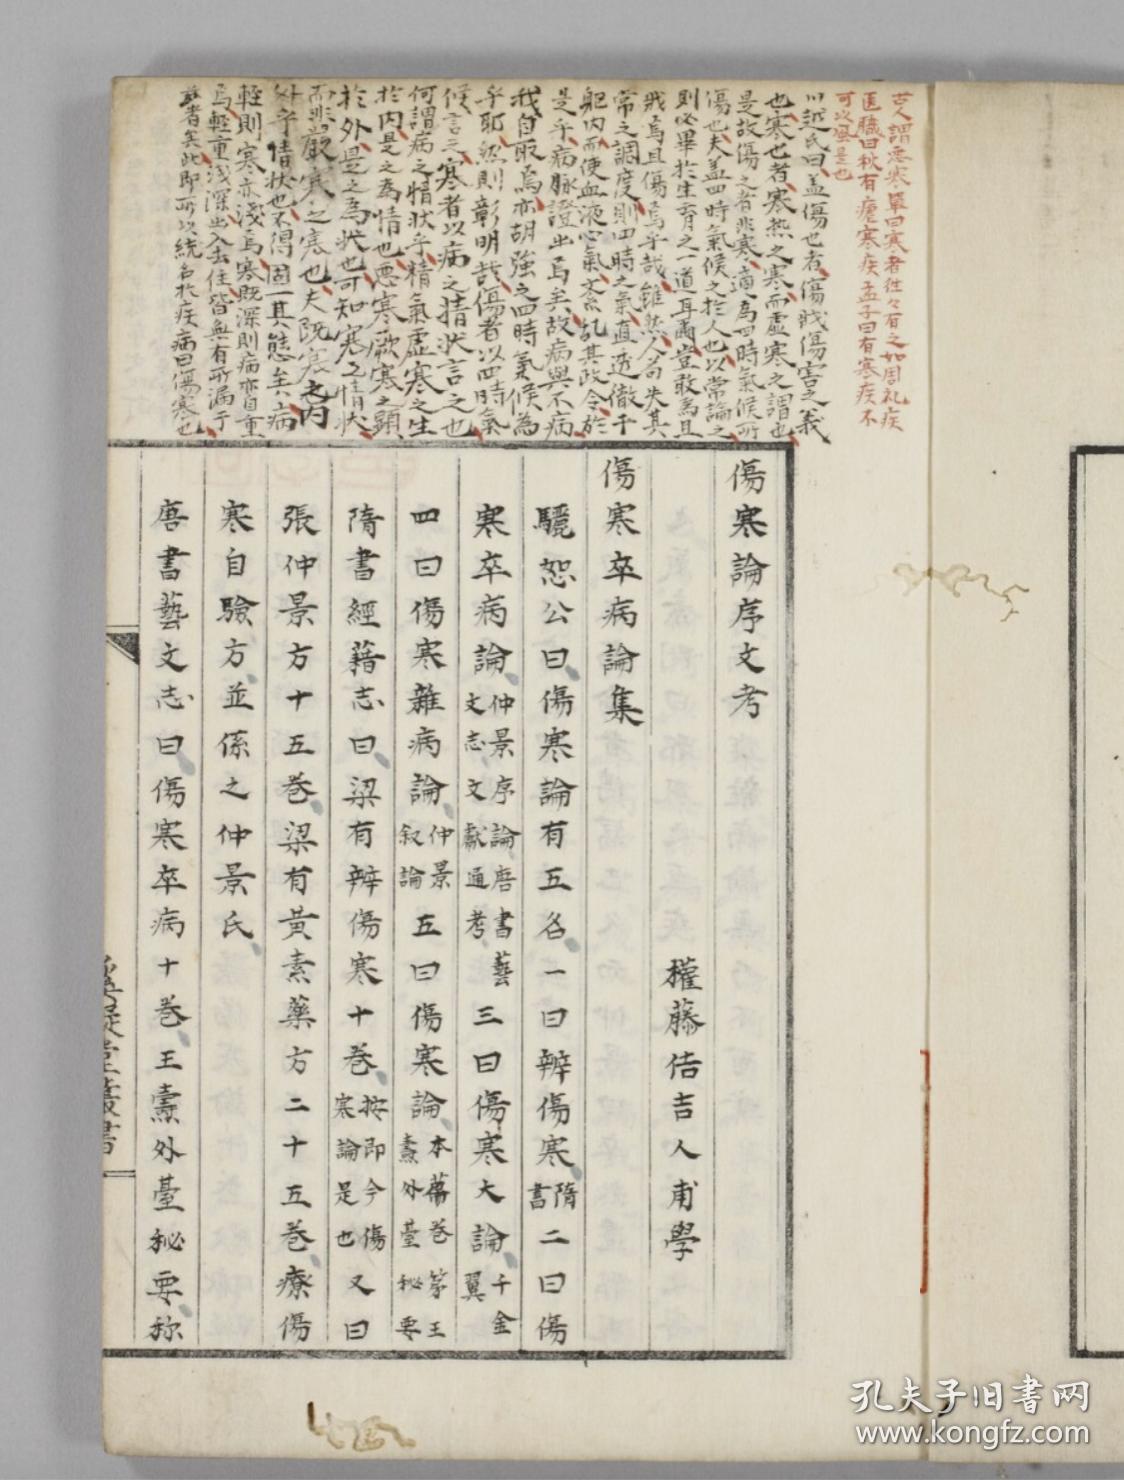 古人謂惡寒單曰寒者往々有之如周礼疾
医職曰秋有瘧寒疾孟子曰有寒疾不
可以風是也
川越氏曰盖傷也者傷戕傷害之義
也寒也者寒熱之寒而虛寒之謂也
是故傷之者非寒適為四時氣候所
傷也夫盖四時氣候之於人也以常論之
則必畢於生育之一道耳爾豈敢為且
戕焉且傷焉乎哉雖然人苟失其
常之調度則四時之氣直透徹于
軀内而使血液心氣紊乱其政令於
是乎病脉證出焉矣故病與不病
我自取焉亦胡強之四時氣候為
乎耶然則彰明哉傷者以四時氣
候言之寒者以病之情状言之也
何謂病之情状乎精氣虛寒之生
於内是之為情也悪寒厥寒之顕
於外是之為状也可知寒之情状
而非嚴寒之寒也夫既寒之内
外乎情状也不得固一其態矣病
輕則寒亦淺焉寒既深則病亦自重
焉輕重淺深出入去住皆無有所漏于
者矣此即所以統名於疾病曰傷寒也
傷寒論序文考
權藤佶吉人甫學
傷寒卒病論集
驪恕公曰傷寒論有五名一曰辨傷寒隋書二曰傷
寒卒病論仲景序論唐書藝文志文獻通考三曰傷寒大論千金翼
四曰傷寒雜病論仲景叙論五曰傷寒論本論卷第王燾外臺秘要
隋書經籍志曰梁有辨傷寒十卷按即今傷寒論是也又曰
張仲景方十五卷梁有黃素藥方二十五卷療傷
寒自驗方並係之仲景氏
唐書藝文志曰傷寒卒病十卷王燾外臺秘要称
孔夫子旧书网
www.kongfz.com